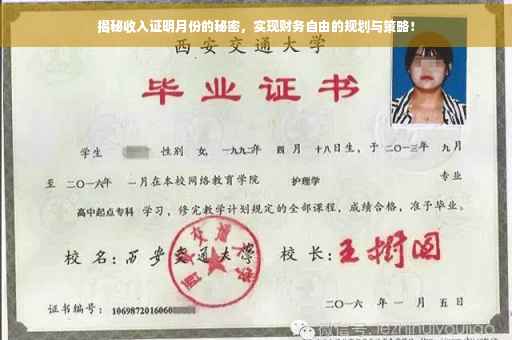 揭秘收入证明月份的秘密，实现财务自由的规划与策略！
西安交通大学
毕业证书
学生 性别 女, 一九九二年 四 月 十八日生，于 二〇一三年 九月
至 二〇一六年 一月在本校网络教育学院 护理学 专业
高中起点专科 学习，修完教学计划规定的全部课程，成绩合格，准予毕业。
校 名：西安交通大学 校 长：王树国
西安交通大学
证书编号：1069872016060
二〇一六 年 一 月 五 日
微信号: jezhinuiyoujiao